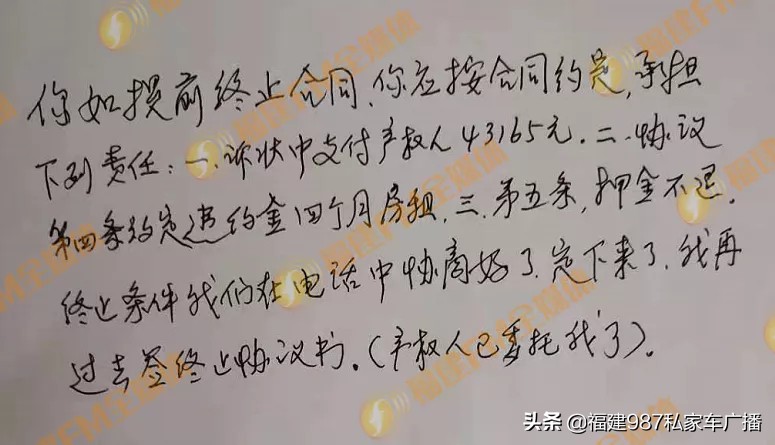 你如提前终止合同、你应按合同约定,承担
下列责任:一.诉状中支付产权人43165元.二.协议
第四条约定违约金四个月房租,三.第五条,押金不退.
终止条件我们在电话中协商好了.定下来了.我再
过去签终止协议书.(产权人已委托我了).
福建FM全媒体
头条 @福建987私家车广播